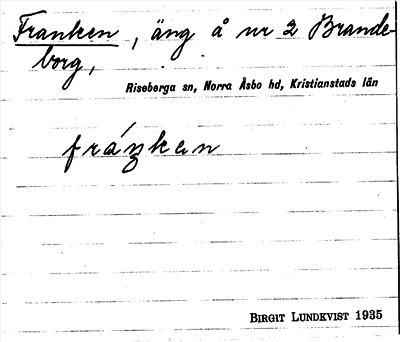 Franken, äng å nr 2 Brande-
borg,
Riseberga sn, Norra Åsbo hd, Kristianstads län
fráŋken
BIRGIT LUNDKVIST 1935